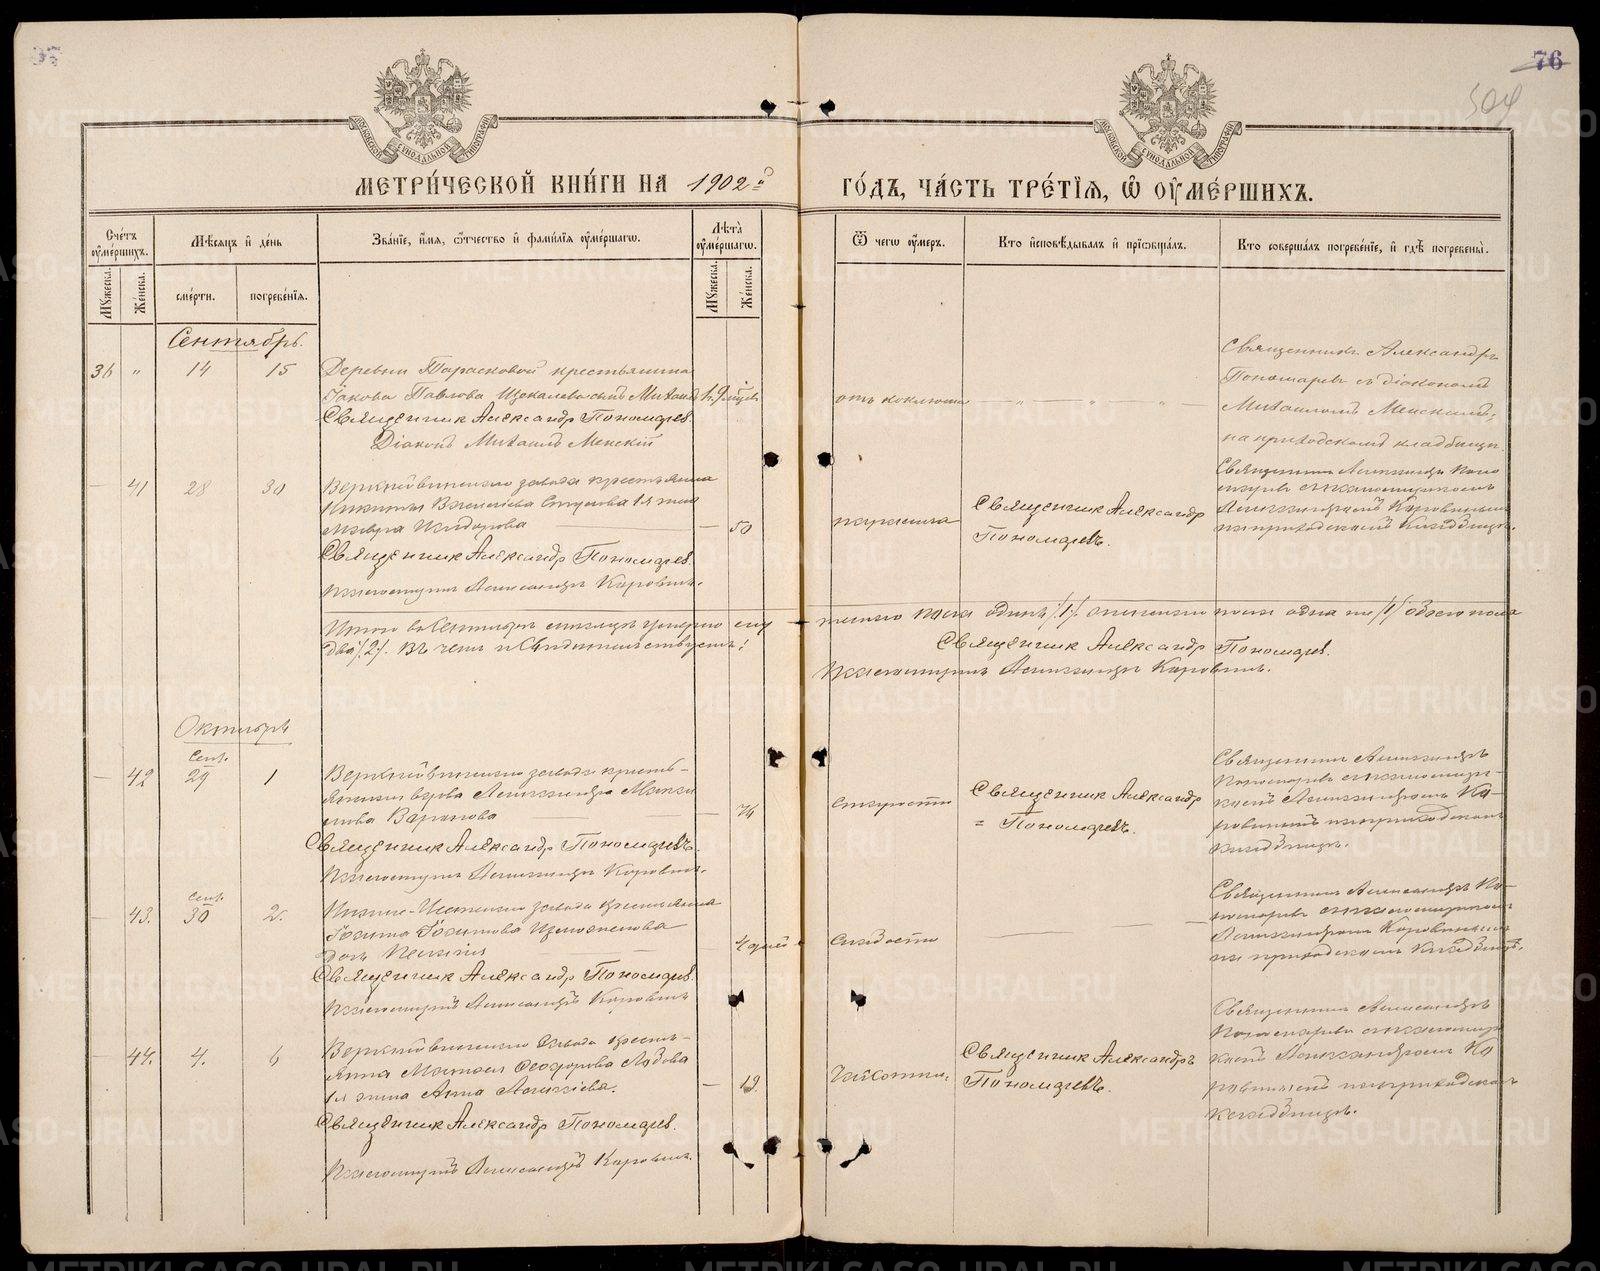 76
504
МОСКОВСКОЙ СУНОДАЛЬНОЙ ТИПОГРАФІИ
МОСКОВСКОЙ СУНОДАЛЬНОЙ ТИПОГРАФІИ
МЕТРИ́ЧЕСКОЙ КНИ́ГИ НА 1902й
ГО́ДЪ, ЧА́СТЬ ТРЕ́ТІѦ, Ѿ ОУМЕ́РШИХЪ.
Сче́тъ оумершихъ.
Му́жеска.
Же́нска.
Мѣсяцъ и де́нь
сме́рти.
погребе́нія.
Зва́ніе, и́мя, ѻтчество и фами́лія оуме́ршагѡ.
Лѣта̀ оуме́ршагѡ.
Му́жеска.
Же́нска.
Ѿ чегѡ оу́меръ.
Кто исповѣ́дывалъ и приѡбща́лъ.
Кто соверша́лъ погребе́ніе, и гдѣ̀ погребены̀.
Сентябрь.
36 " 14 15
Деревни Тарасковой крестьянина
Іакова Павлова Щекалевъ сынъ Михаилъ 1 г. 9 мѣсяц.
Священник Александр Пономарев.
Діаконъ Михаилъ Менскій
отъ коклюша
Священникъ Александръ
Пономаревъ съ діакономъ
Михаиломъ Менскимъ,
на приходскомъ кладбищѣ.
— 41 28 30
Верхнейвинскаго завода крестьянина
Никиты Васильева 1я жена
Мавра Исидорова — 50
Священник Александр Пономарев.
Псаломщикъ Александръ Коровинъ.
Священник Александр
Пономаревъ.
Священникъ Александръ Поно
маревъ съ псаломщикомъ
Александромъ Коровинымъ
на приходскомъ кладбищѣ.
Итого въ Сентябрѣ мѣсяцѣ умерло
мужескаго пола одинъ /1/ женскаго пола одна /1/ обоего пола
два /2/. Въ чемъ и свидѣтельствуемъ:
Священник Александр Пономарев.
Псаломщикъ Александръ Коровинъ.
Октябрь
— 42 Сент. 29 1
Верхнейвинскаго завода кресть-
янская вдова Александра Макси
мова Варакова — 74
Священник Александр Пономаревъ.
Псаломщикъ Александръ Коровинъ.
старости
Священник Александр
= Пономаревъ.
Священникъ Александръ
Пономаревъ съ псаломщи-
комъ Александромъ Ко-
ровинымъ на приходскомъ
кладбищѣ.
— 43. Сент. 30 2.
завода крестьянина
дочь 4 дней
Священник Александр Пономарев.
Псаломщикъ Александръ Коровинъ
слабости
Священникъ Александръ По-
номаревъ съ псаломщикомъ
Александромъ Коровинымъ
на приходскомъ кладбищѣ.
— 44. 4. 6
Верхнейвинскаго завода кресть-
янина Матвея Ѳеодорова Лядова
1я жена Анна Алексѣева. — 19.
Священник Александр Пономарев.
Псаломщикъ Александръ Коровинъ.
чахотки.
Священник Александръ
Пономаревъ.
Священникъ Александръ
Пономаревъ съ псаломщи
комъ Александромъ Ко
ровинымъ на приходскомъ
кладбищѣ.
METRIKI.GASO-URAL.RU